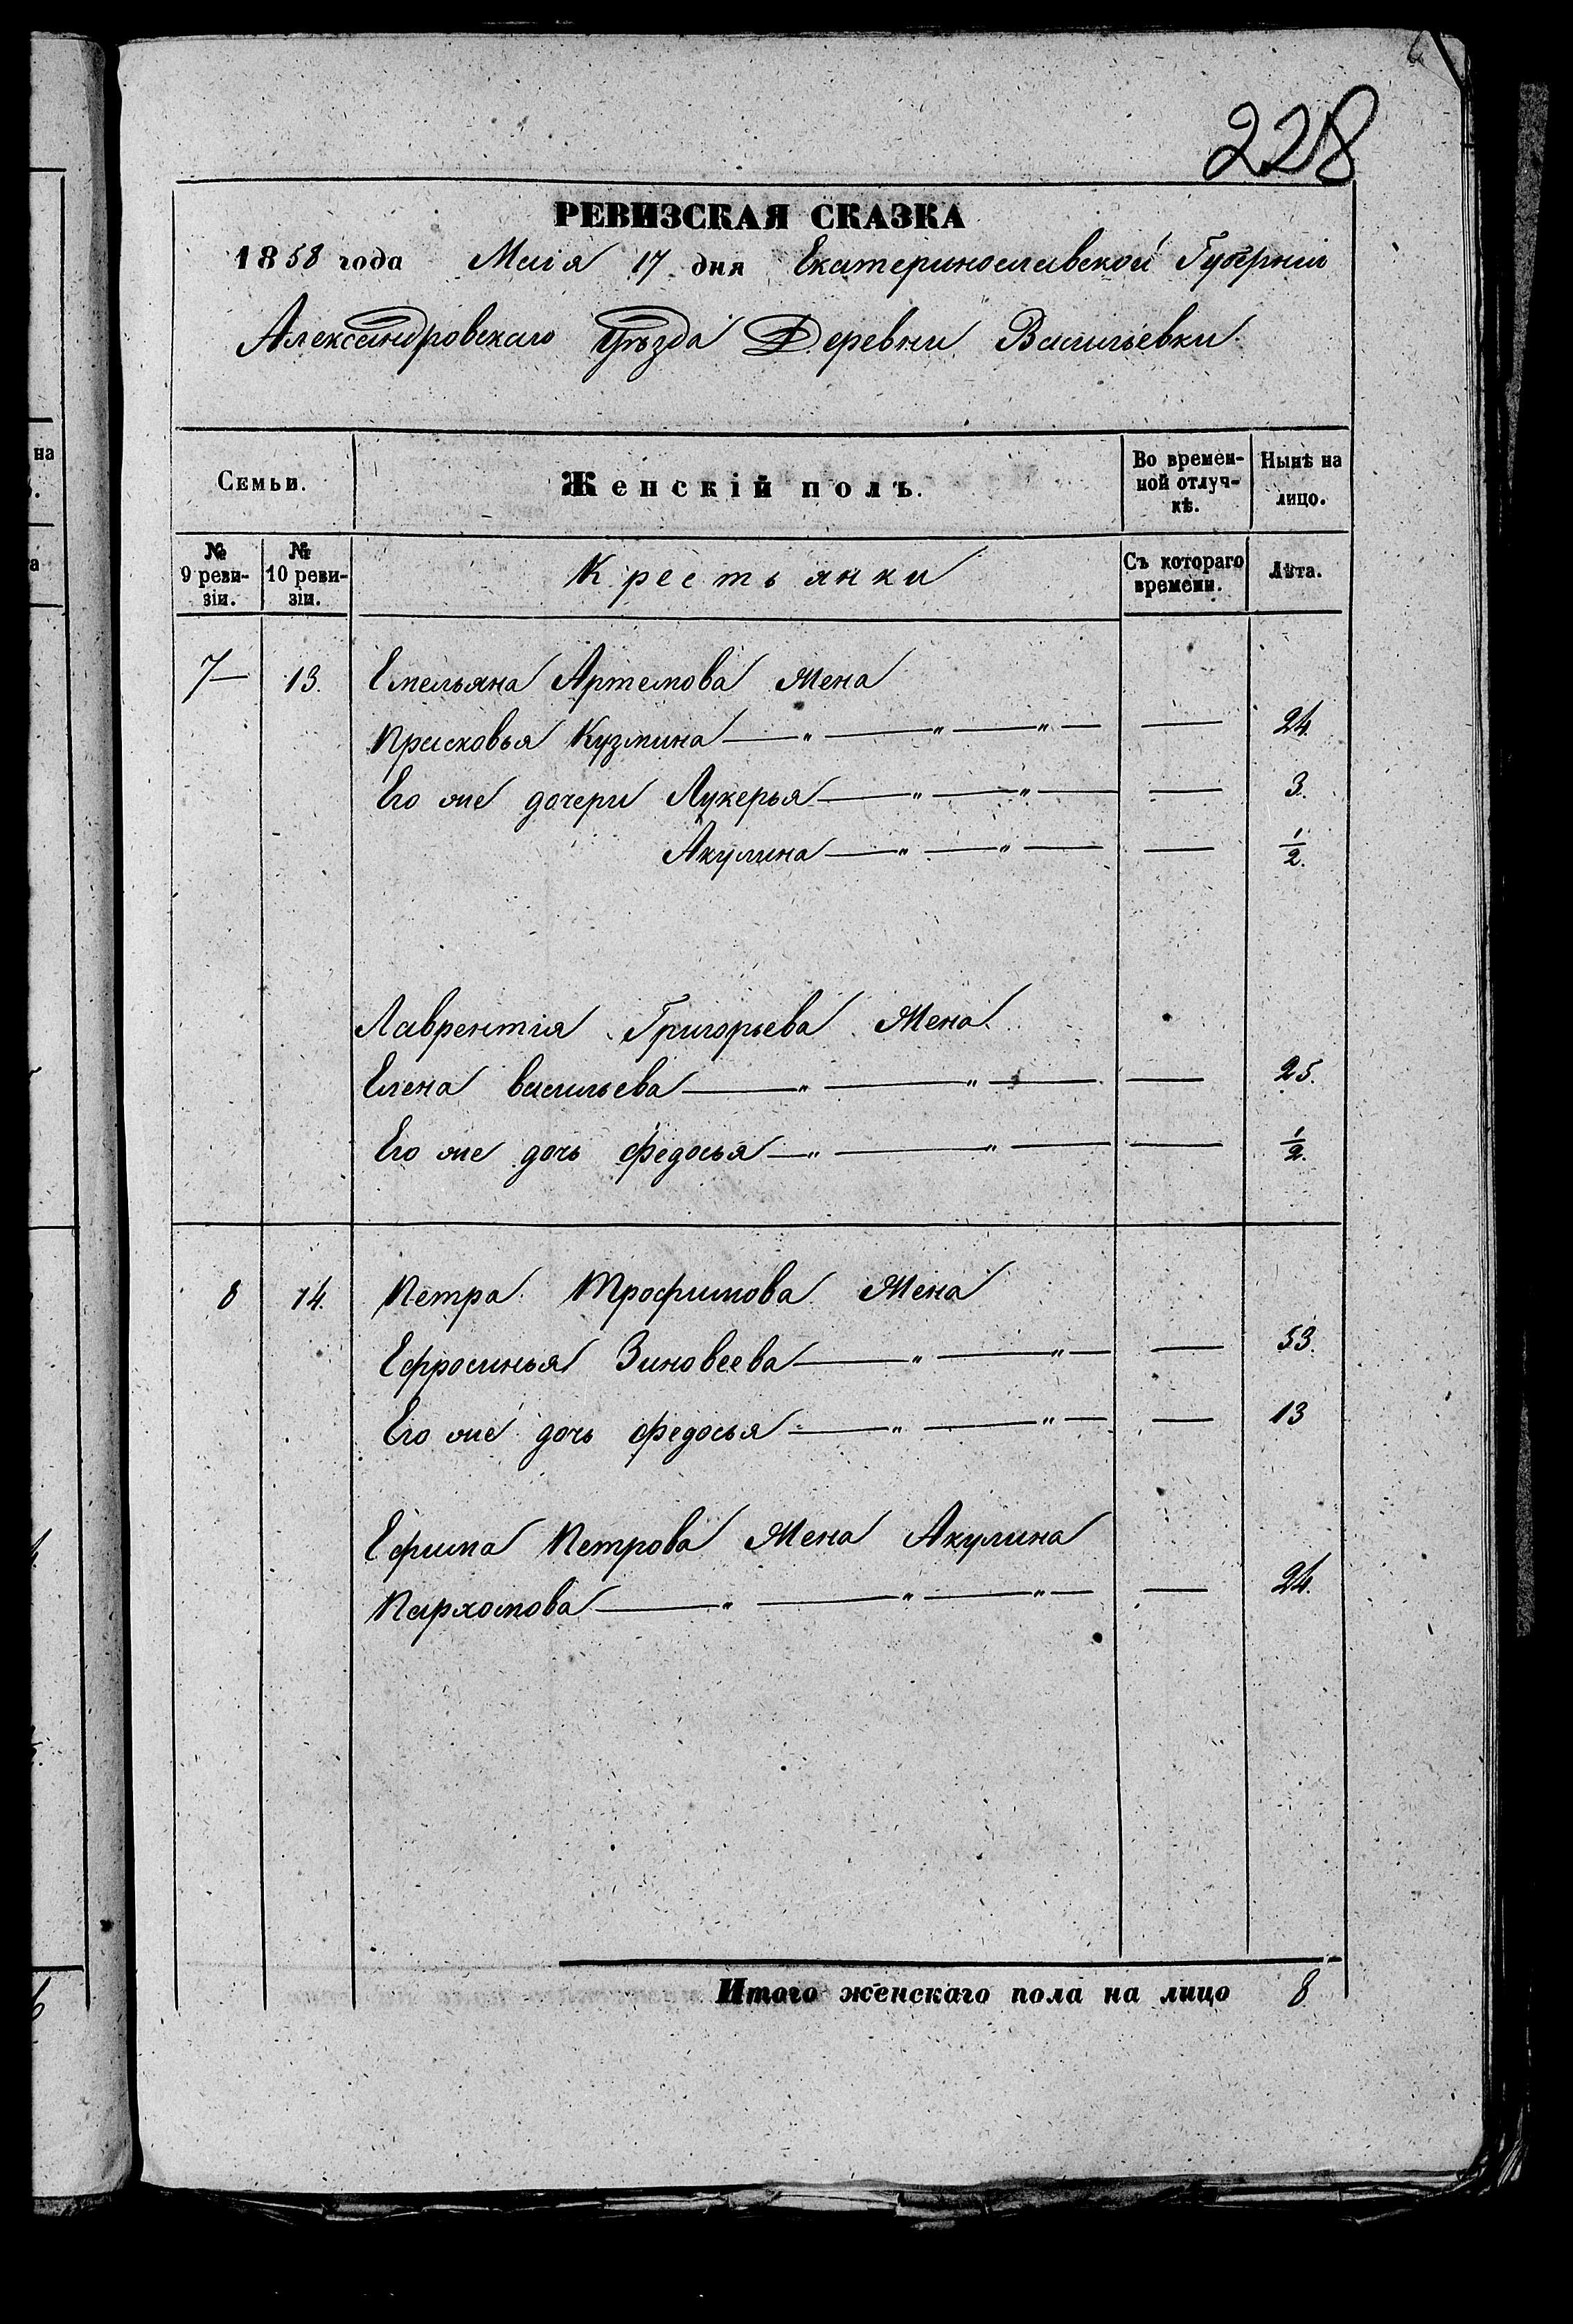 228
РЕВИЗСКАЯ СКАЗКА
1858 года Маія 17 дня Екатеринославской Губерніи
Александровскаго Уѣзда Деревни Васильевки
Семьи.
Женскій полъ.
Во времен-
ной отлуч-
кѣ.
Нынѣ на
лицо.
№
9 реви-
зіи.
№
10 реви-
зіи.
Крестьянки
Съ котораго
времени.
Лѣта.
7 — 13. Емельяна Артемова Жена
Прасковья Кузмина — " — " — " — — 24.
Его же дочери Лукерья — " — " — — 3.
Акулина — " — " — — 1/2.
Лаврентія Григорьева Жена
Елена васильева — " — " — — 25.
Его же дочь федосья — " — " — — 1/2.
8 14. Петра Трофимова Жена
Ефросинья Зиновеева — " — " — — 53.
Его же дочь федосья — " — " — — 13
Ефима Петрова Жена Акулина
Пархомова — " — " — " — — 24.
Итого женскаго пола на лицо 8
на
а